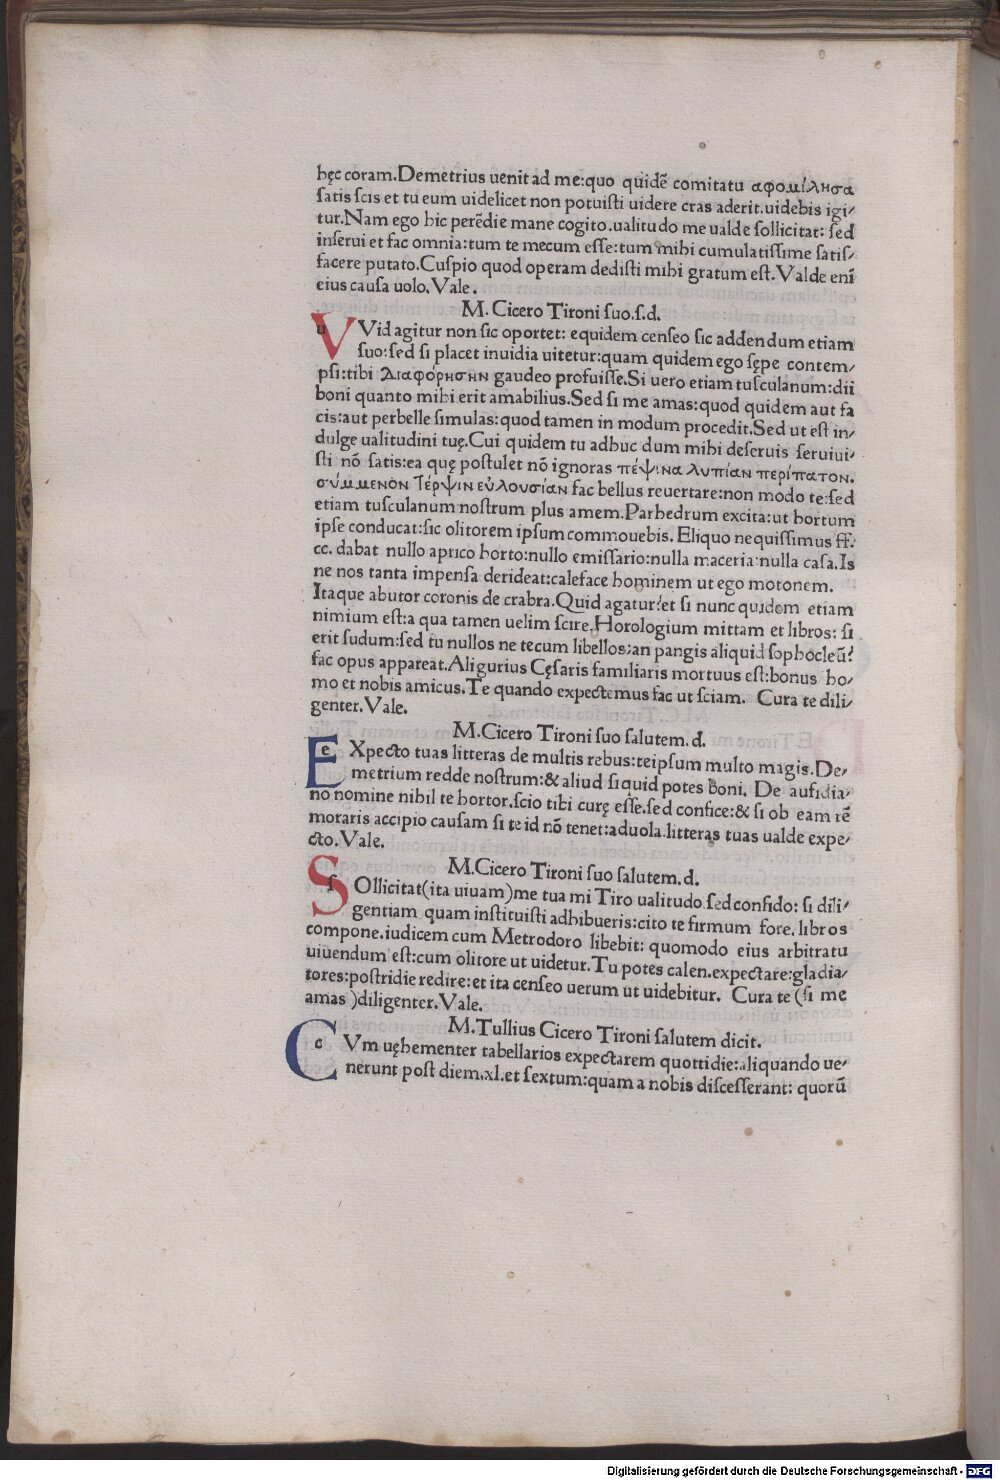 hęc coram.Demetrius uenit ad me:quo quidē comitatu αφομίλησα
ſatis ſcis et tu eum uidelicet non potuiſti uidere cras aderit.uidebis igi/
tur.Nam ego hic perēdie mane cogito.ualitudo me ualde ſollicitat: ſed
inſerui et fac omnia:tum te mecum eſſe:tum mihi cumulatiſſime ſatiſ/
facere putato.Cuſpio quod operam dediſti mihi gratum eſt.Valde enī
eius cauſa uolo.Vale.
M. Cicero Tironi ſuo.ſ.d.
u Vid agitur non ſic oportet: equidem cenſeo ſic addendum etiam
ſuo:ſed ſi placet inuidia uitetur:quam quidem ego ſępe contem/
pſi:tibi Διαφόρησην gaudeo profuiſſe.Si uero etiam tuſculanum:dii
boni quanto mihi erit amabilius.Sed ſi me amas:quod quidem aut fa
cis:aut perbelle ſimulas:quod tamen in modum procedit.Sed ut eſt in/
dulge ualitudini tuę.Cui quidem tu adhuc dum mihi deſeruis ſeruiui/
ſti nō ſatis:ea quę poſtulet nō ignoras πέψινα λυπίαν περίπατον.
σύμμενον Τέρψιν εὐλουσίαν fac bellus reuertare:non modo te:ſed
etiam tuſculanum noſtrum plus amem.Parhedrum excita:ut hortum
ipſe conducat:ſic olitorem ipſum commouebis. Eliquo nequiſſimus ff.
cc. dabat nullo aprico horto:nullo emiſſario:nulla maceria:nulla caſa.Iſ
ne nos tanta impenſa derideat:caleface hominem ut ego motonem.
Itaque abutor coronis de crabra.Quid agatur:et ſi nunc quidem etiam
nimium eſt:a qua tamen uelim ſcire.Horologium mittam et libros: ſi
erit ſudum:ſed tu nullos ne tecum libellos:an pangis aliquid ſophocleū?
fac opus appareat.Aligurius Cęſaris familiaris mortuus eſt:bonus ho/
mo et nobis amicus.Te quando expectemus fac ut ſciam. Cura te dili/
genter.Vale.
M.Cicero Tironi ſuo ſalutem.d.
e Xpecto tuas litteras de multis rebus:teipſum multo magis.De/
metrium redde noſtrum:& aliud ſi quid potes boni. De aufidia/
no nomine nihil te hortor.ſcio tibi curę eſſe.ſed confice:& ſi ob eam rē
moraris accipio cauſam ſi te id nō tenet:aduola.litteras tuas ualde expe/
cto.Vale.
M.Cicero Tironi ſuo ſalutem.d.
ſ Ollicitat(ita uiuam)me tua mi Tiro ualitudo ſed confido: ſi dili/
gentiam quam inſtituiſti adhibueris:cito te firmum fore. libros
compone.iudicem cum Metrodoro libebit: quomodo eius arbitratu
uiuendum eſt:cum olitore ut uidetur.Tu potes calen.expectare:gladia/
tores:poſtridie redire:et ita cenſeo uerum ut uidebitur. Cura te (ſi me
amas )diligenter.Vale.
M.Tullius Cicero Tironi ſalutem dicit.
c Vm uęhementer tabellarios expectarem quottidie:aliquando ue/
nerunt poſt diem.xl.et ſextum:quam a nobis diſceſſerant: quorū
Digitalisierung gefördert durch die Deutsche Forschungsgemeinschaft - DFG